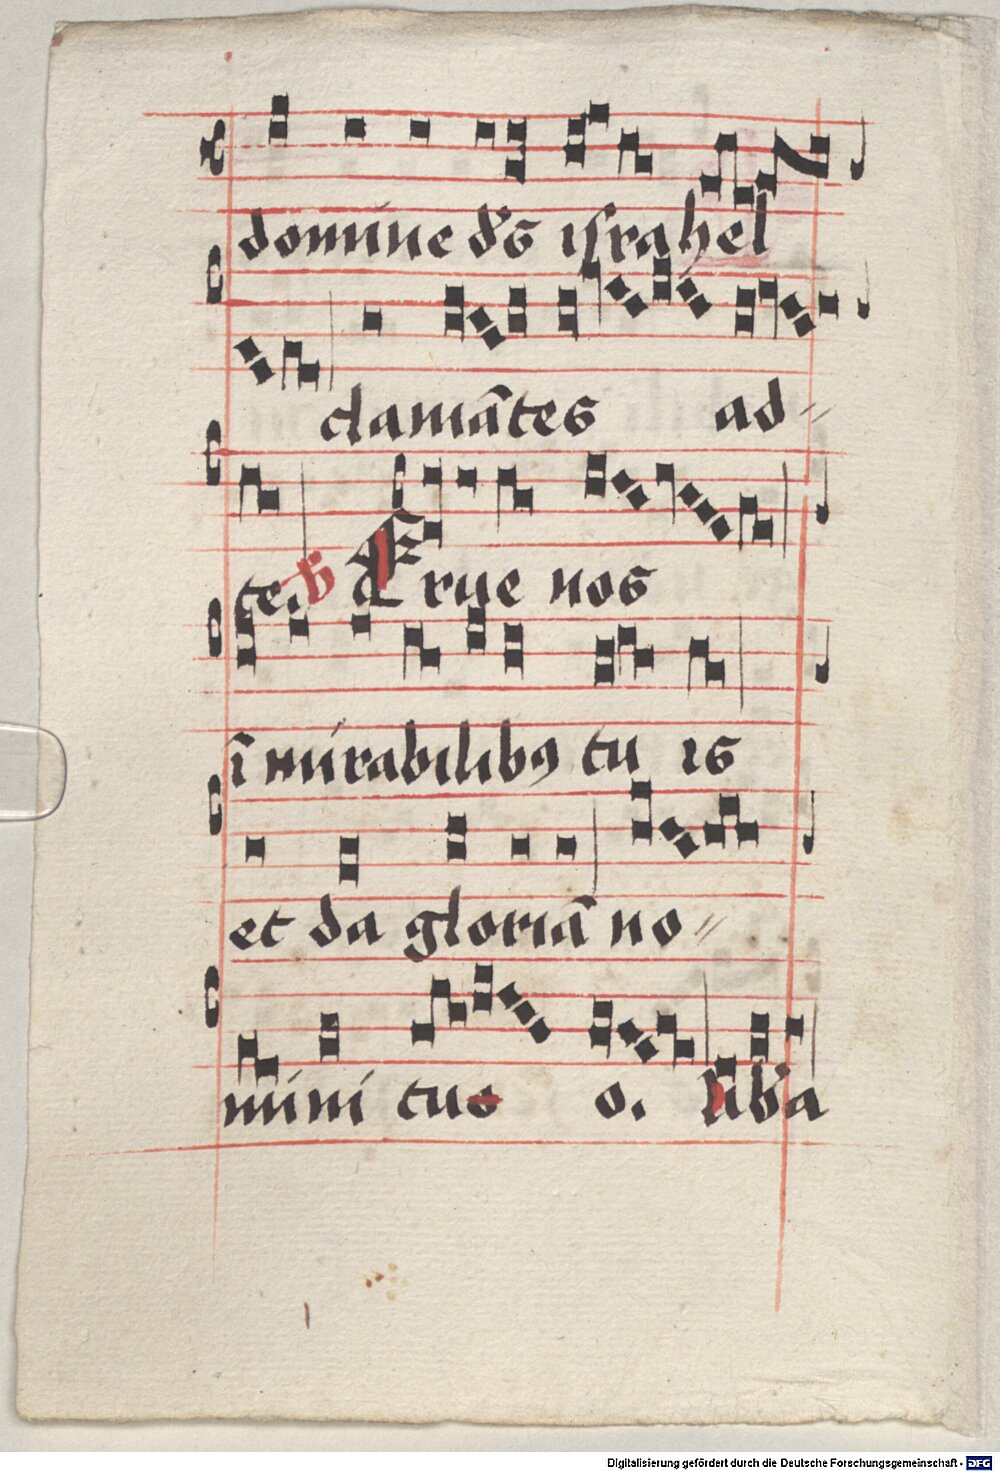 domine ds israhel
clamātes ad=
te. V Erue nos
ī mirabilibꝯ tu is
et da gloriā no=
mini tuo o. liba
Digitalisierung gefördert durch die Deutsche Forschungsgemeinschaft - DFG